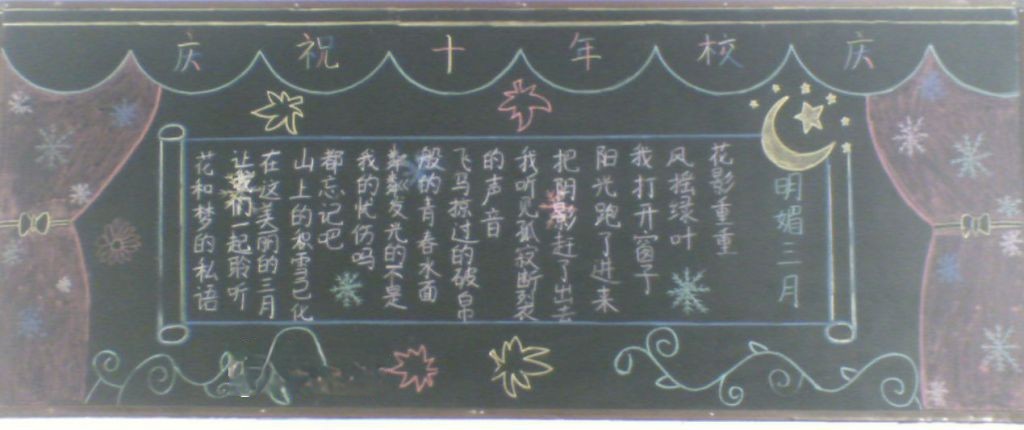 庆祝十年校庆
明媚三月
花影重重
风摇绿叶
我打开窗子
阳光跑了进来
把阴影赶了出去
我听见孤寂断裂
的声音
飞马掠过的破帛
般的青春水面
粼粼发光的不是
我的忧伤吗
都忘记吧
山上的积雪已化
在这美丽的三月
让我们一起聆听
花和梦的私语